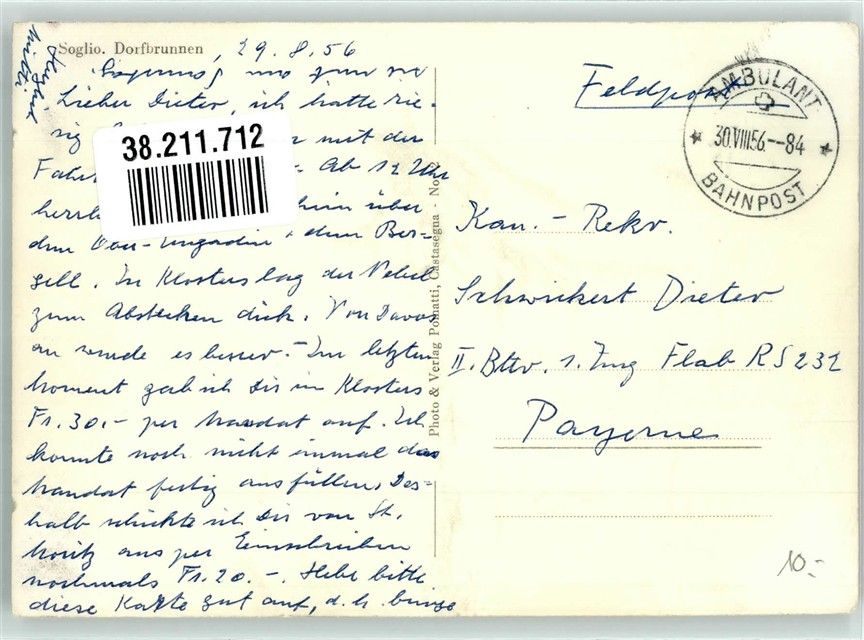 Soglio. Dorfbrunnen, 29.8.56
Lieber Dieter, ich hatte rie-
sig mit der
Ab 12 Uhr
über
dem Ober-Engadin dem Ber-
gell. In Klosters lag der Nebel
zum Abstecken dick. Von Davos
an wurde es besser. - Im letzten
Moment gab ich Dir in Klosters
Fr. 30.- per Mandat auf. Ich
konnte noch nicht einmal das
Mandat fertig ausfüllen. Des-
halb schickte ich Dir von St.
Moritz aus per Einschreiben
nochmals Fr. 20.-. Hebe bitte
diese Karte gut auf, d.h. bringe
Herzlich
Mutti
Photo & Verlag Pomatti, Castasegna - No.
38.211.712
Feldpost
AMBULANT
30.VIII.56.--84
BAHNPOST
Kan. - Rekr.
Schwickert Dieter
II. Bttr. 1. Zug Flab RS 231
Payerne
10.-